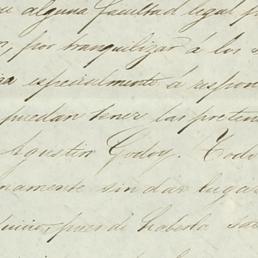 alguna facultad legal p
, por tranquilizar á los
especialmente á respon
puedan tener las preten
Agustin Godoy. Todo
namente sin dar lugar
juicio, pues de haberlo